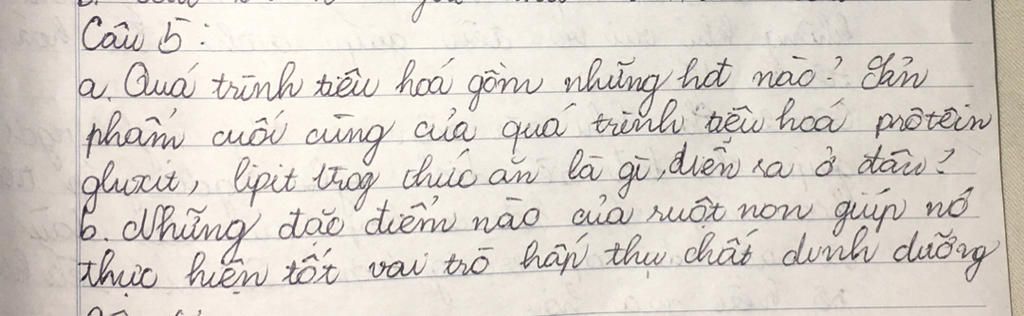 Câu 5:
a. Quá trình tiêu hoá gồm những hđ nào? Sản
phẩm cuối cùng của quá trình tiêu hoá prôtêin
gluxit, lipit trog thức ăn là gì, diễn ra ở đâu?
b. Những đặc điểm nào của ruột non giúp nó
thực hiện tốt vai trò hấp thụ chất dinh dưỡng